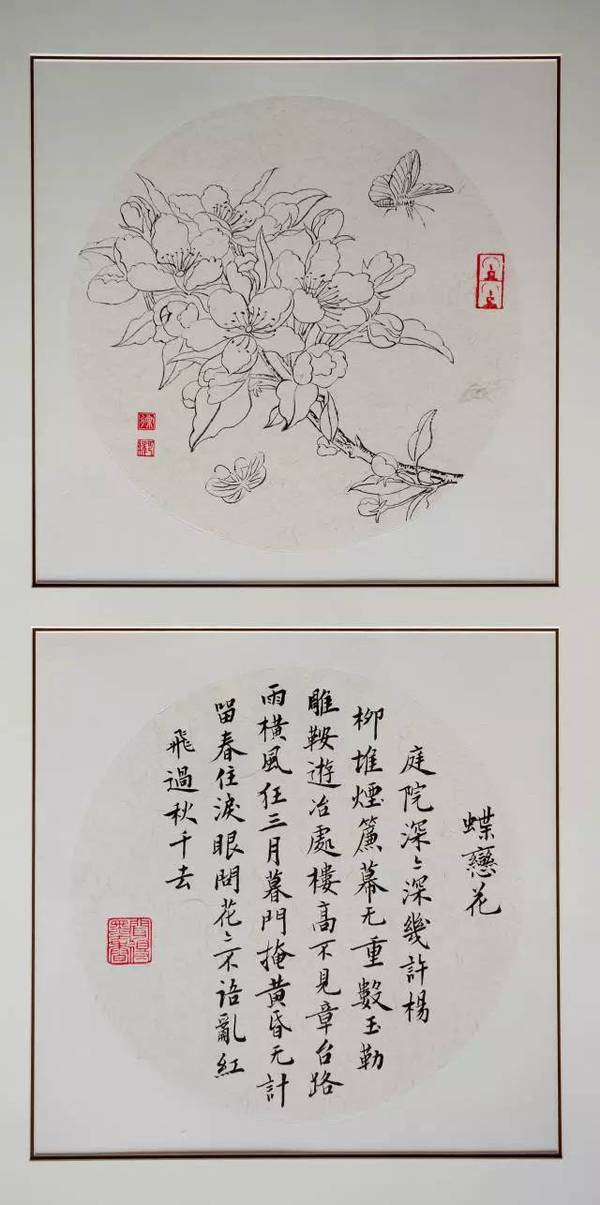 蝶戀花
庭院深〻深幾許楊
柳堆煙簾幕无重數玉勒
雕鞍遊冶處樓高不見章台路
雨橫風狂三月暮門掩黃昏无計
留春住淚眼問花〻不语亂紅
飛過秋千去